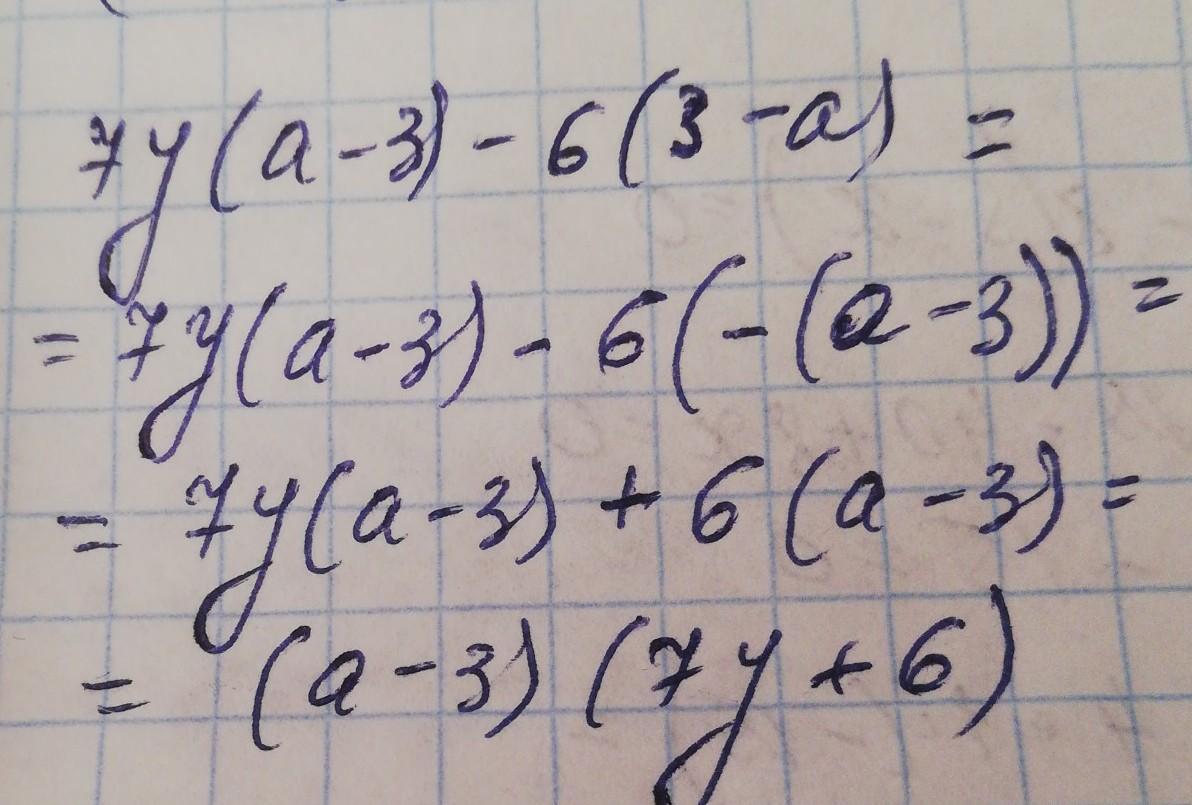 7y(a-3)-6(3-a)=
=7y(a-3)-6(-(a-3))=
=7y(a-3)+6(a-3)=
=(a-3)(7y+6)